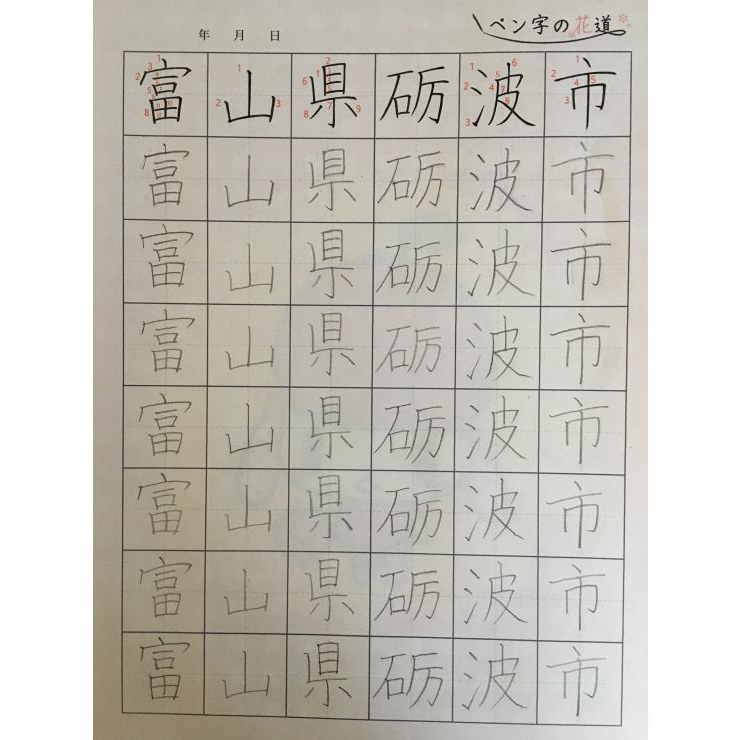 年 月 日
ペン字の花道
富山県砺波市
富山県砺波市
富山県砺波市
富山県砺波市
富山県砺波市
富山県砺波市
富山県砺波市
富山県砺波市